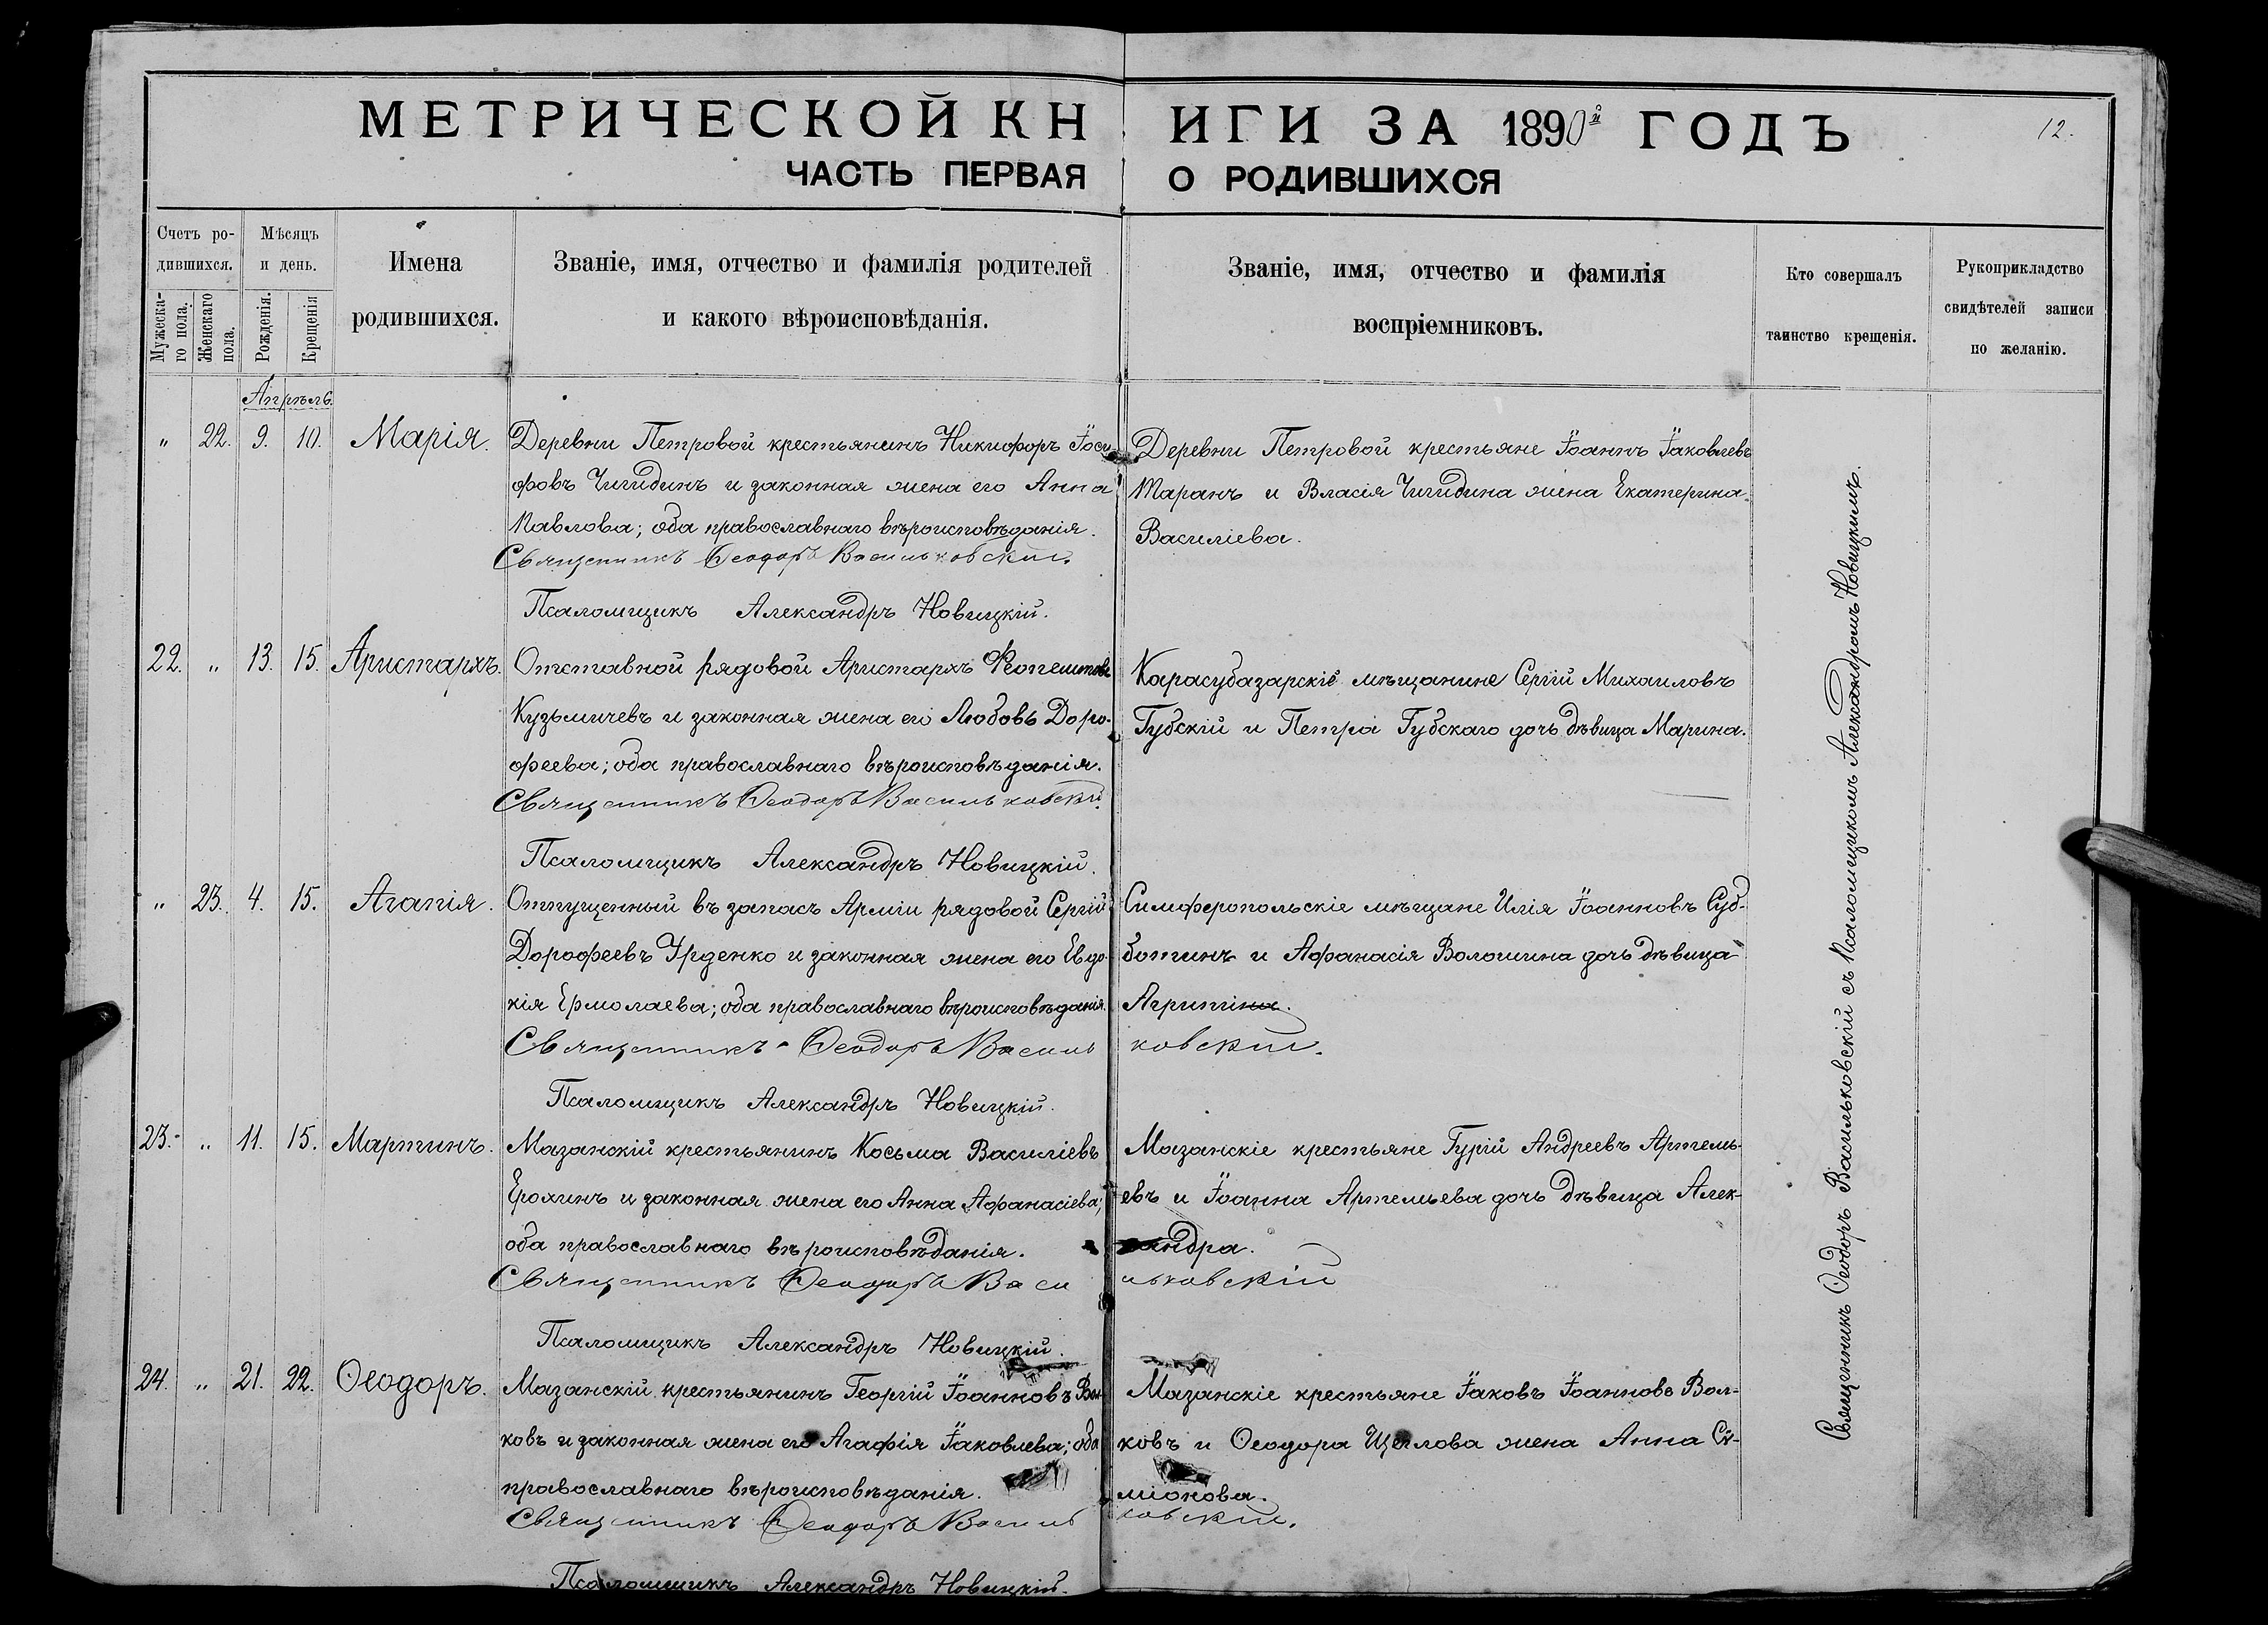 МЕТРИЧЕСКОЙ КНИГИ ЗА 1890й ГОДЪ
12.
ЧАСТЬ ПЕРВАЯ О РОДИВШИХСЯ
Счетъ ро-
дившихся.
Мужеска-
го пола.
Женскаго
пола.
Мѣсяцъ
и день.
Рожденія.
Крещенія
Имена
родившихся.
Званіе, имя, отчество и фамилія родителей
и какого вѣроисповѣданія.
Званіе, имя, отчество и фамилія
воспріемниковъ.
Кто совершалъ
таинство крещенія.
Рукоприкладство
свидѣтелей записи
по желанію.
Апрѣль
" 22. 9. 10. Марія.
Деревни Петровой крестьянинъ Никифоръ Іоси
фовъ Чигидинъ и законная жена его Анна
Павлова; оба православнаго вѣроисповѣданія.
Священникъ Ѳеодоръ Васильковскій.
Псаломщикъ Александръ Новицкій.
Деревни Петровой крестьяне Іоаннъ Іаковлевъ
Таранъ и Власія Чигидина жена Екатерина
Василіева.
22. " 13. 15. Аристархъ.
Отставной рядовой Аристархъ
Кузьмичевъ и законная жена его Любовь Доро-
феева; оба православнаго вѣроисповѣданія.
Священникъ Ѳеодоръ Васильковскій.
Псаломщикъ Александръ Новицкій.
Карасубазарскіе мѣщанине Сергій Михаиловъ
Губскій и Петра Губскаго дочь дѣвица Марина.
" 23. 4. 15. Агапія.
Отпущенный въ запасъ Арміи рядовой Сергій
Дорофеевъ Урденко и законная жена его Евдо-
кія Ермолаева; оба православнаго вѣроисповѣданія.
Священникъ Ѳеодоръ Васильковскій.
Псаломщикъ Александръ Новицкій.
Симферопольскіе мѣщане Илія Іоанновъ Суб-
ботинъ и Афанасія Волошина дочь дѣвица
23. " 11. 15. Мартинъ.
Мазанскій крестьянинъ Косьма Василіевъ
Ерохинъ и законная жена его Анна Афанасіева;
оба православнаго вѣроисповѣданія.
Священникъ Ѳеодоръ Васильковскій
Псаломщикъ Александръ Новицкій.
Мазанскіе крестьяне Гурій Андреевъ Артемь-
евъ и Іоанна Артемьева дочь дѣвица Алек-
сандра.
24. " 21. 22. Ѳеодоръ.
Мазанскій крестьянинъ Георгій Іоанновъ Вол-
ковъ и законная жена его Агафія Іаковлева; оба
православнаго вѣроисповѣданія.
Священникъ Ѳеодоръ Васильковскій.
Псаломщикъ Александръ Новицкій.
Мазанскіе крестьяне Іаковъ Іоанновъ Вол-
ковъ и Ѳеодора Щеглова жена Анна Си-
міонова.
Священникъ Ѳеодоръ Васильковскій съ Псаломщикомъ Александромъ Новицкимъ.